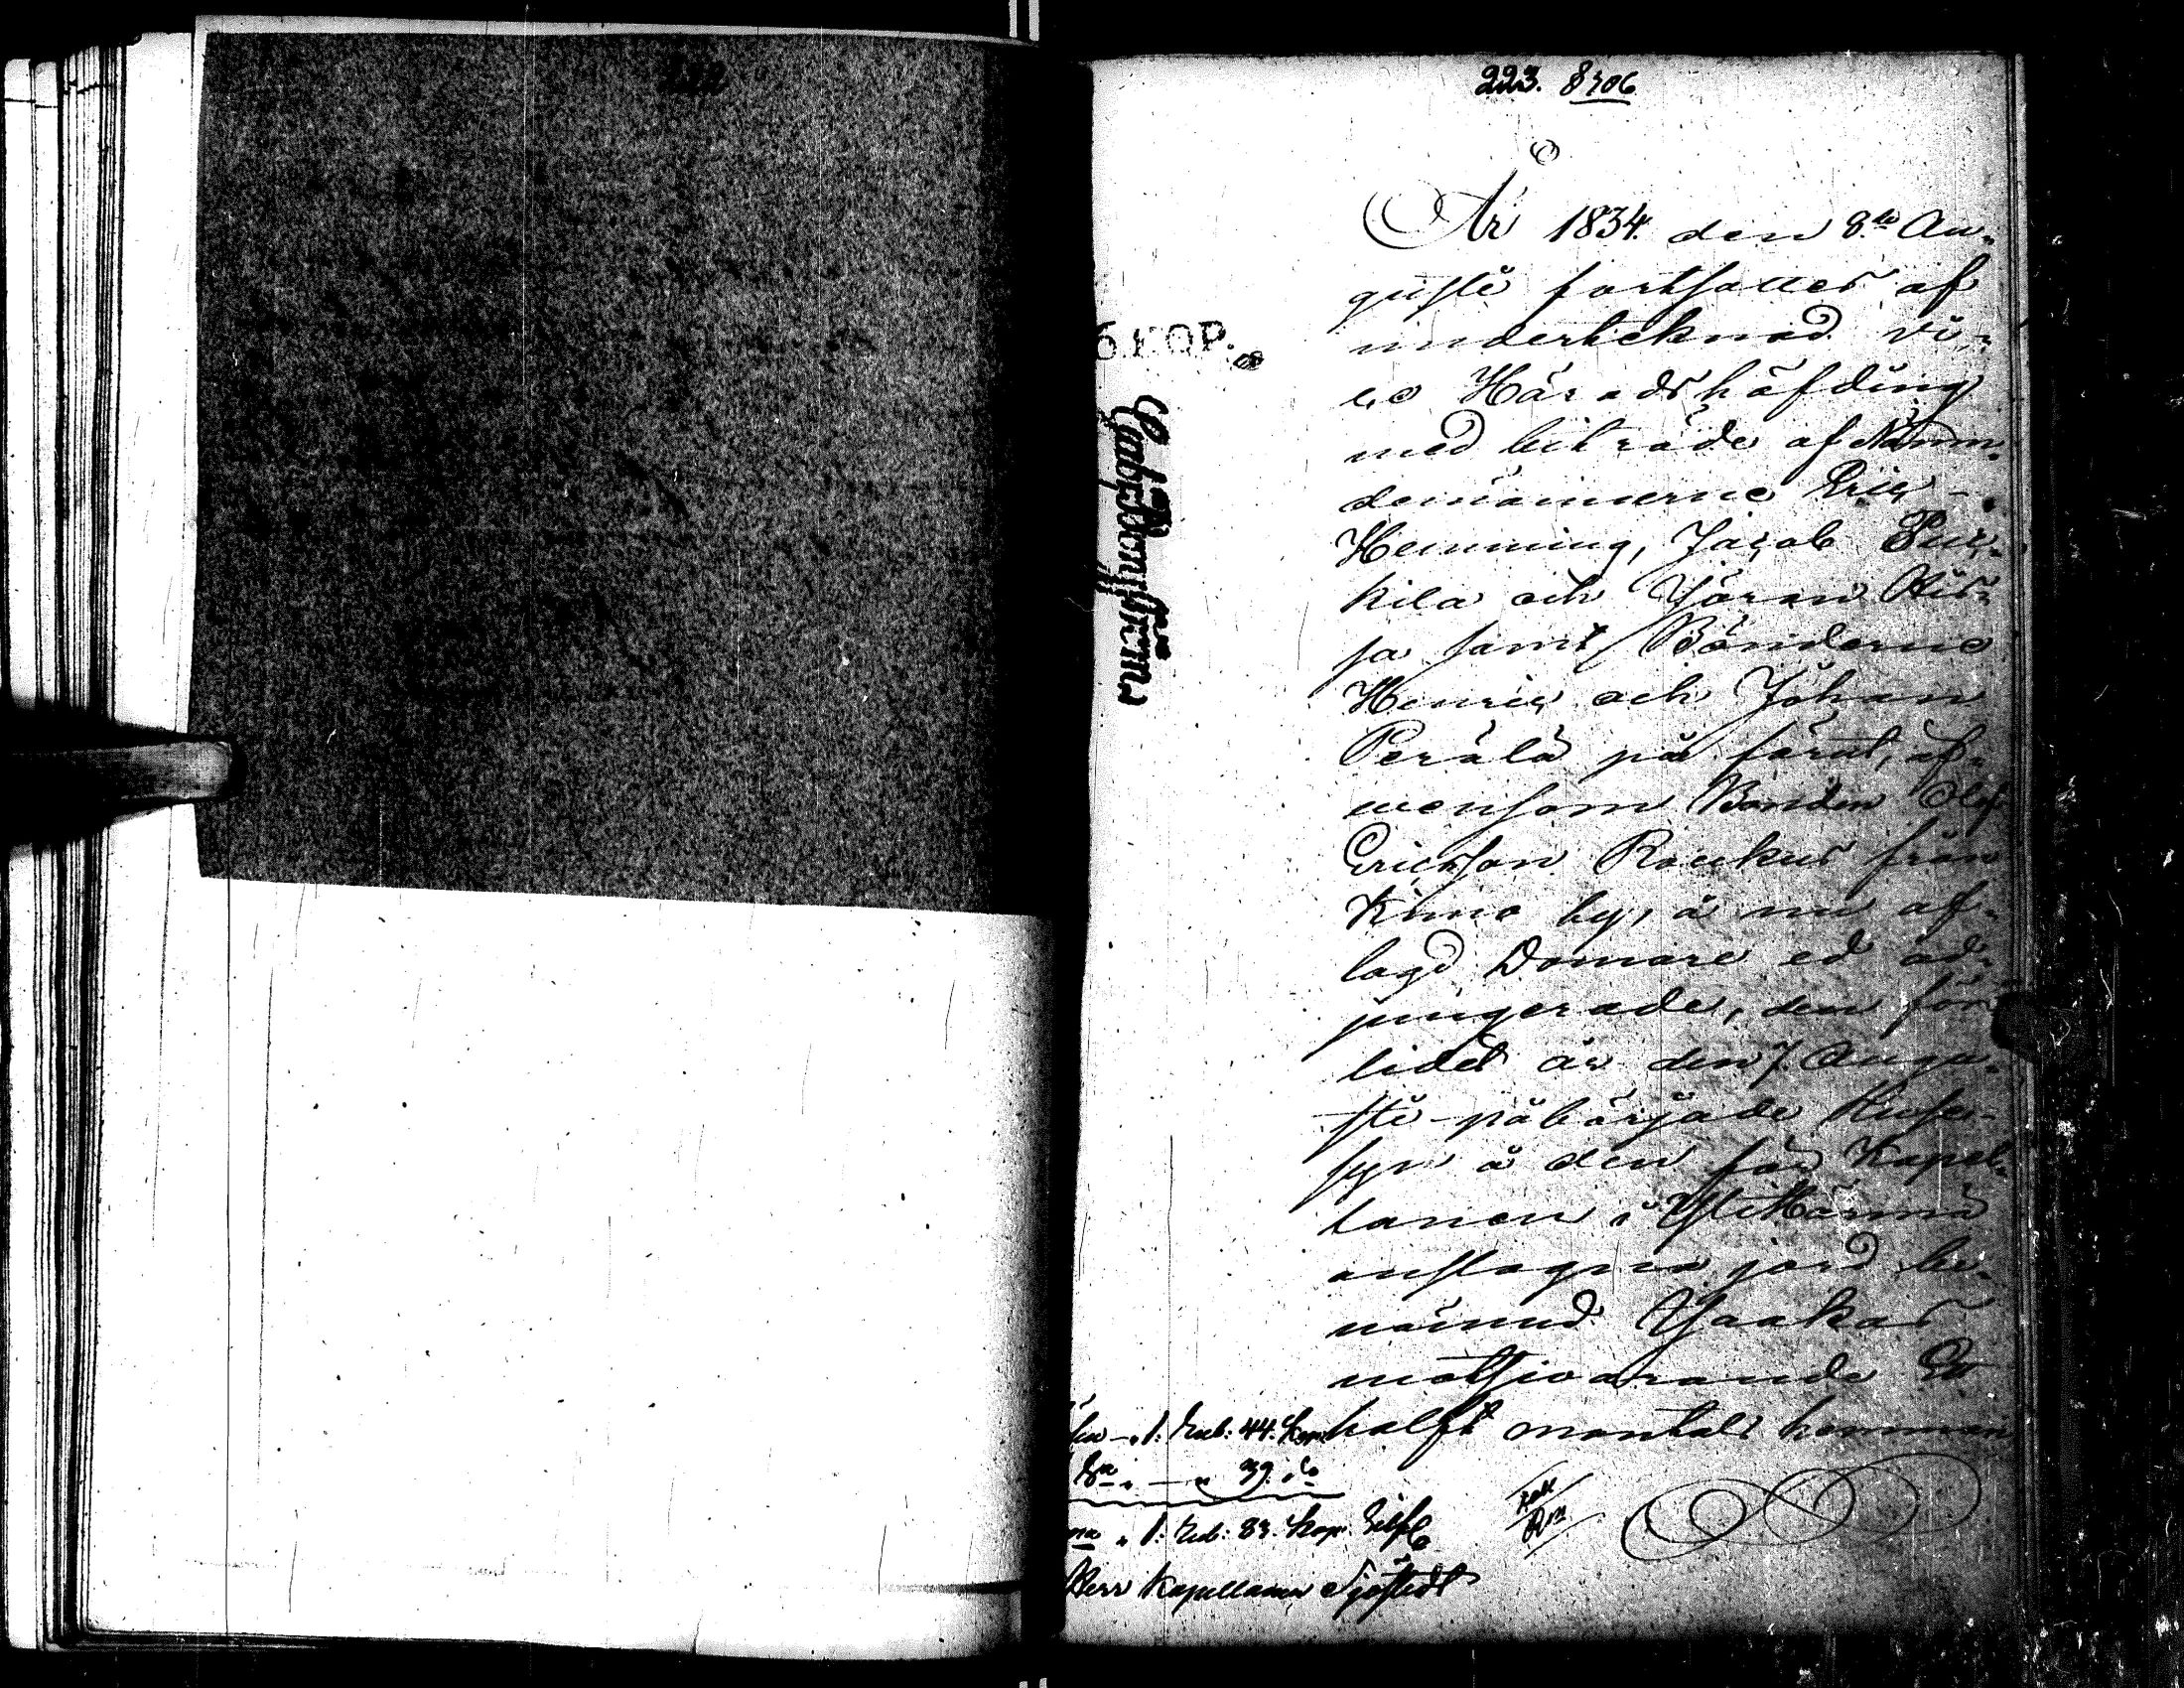 222
223. 8306
År 1834. den 8.de Au-
gusti fortsattes af
undertecknad vi-
ce Häradshöfding
med biträde af Nämn-
demännerne Eric
Hemming, Jacob Pur-
kila och Göran
sa samt Bönderne
Henric och Johan
Perälä på förut, äf-
wensom Bonden Olof
Ericksson Raukus från
Kimo by, å nu af-
lagd Domare ed ad-
jungerade, den för-
lidet år den 7. Augu-
sti påbörjade Huse-
syn å den för Kapel-
lanen i Ylihärmä
anslagna jord be-
nämnd Jaakas
motsvarande Ett
halft mantals hemman
6 KOP.
1. Rub: 44. Kop.
39. do
1. Rub: 83. Kop. Silf
Herr Kapellanen Sjöstedt